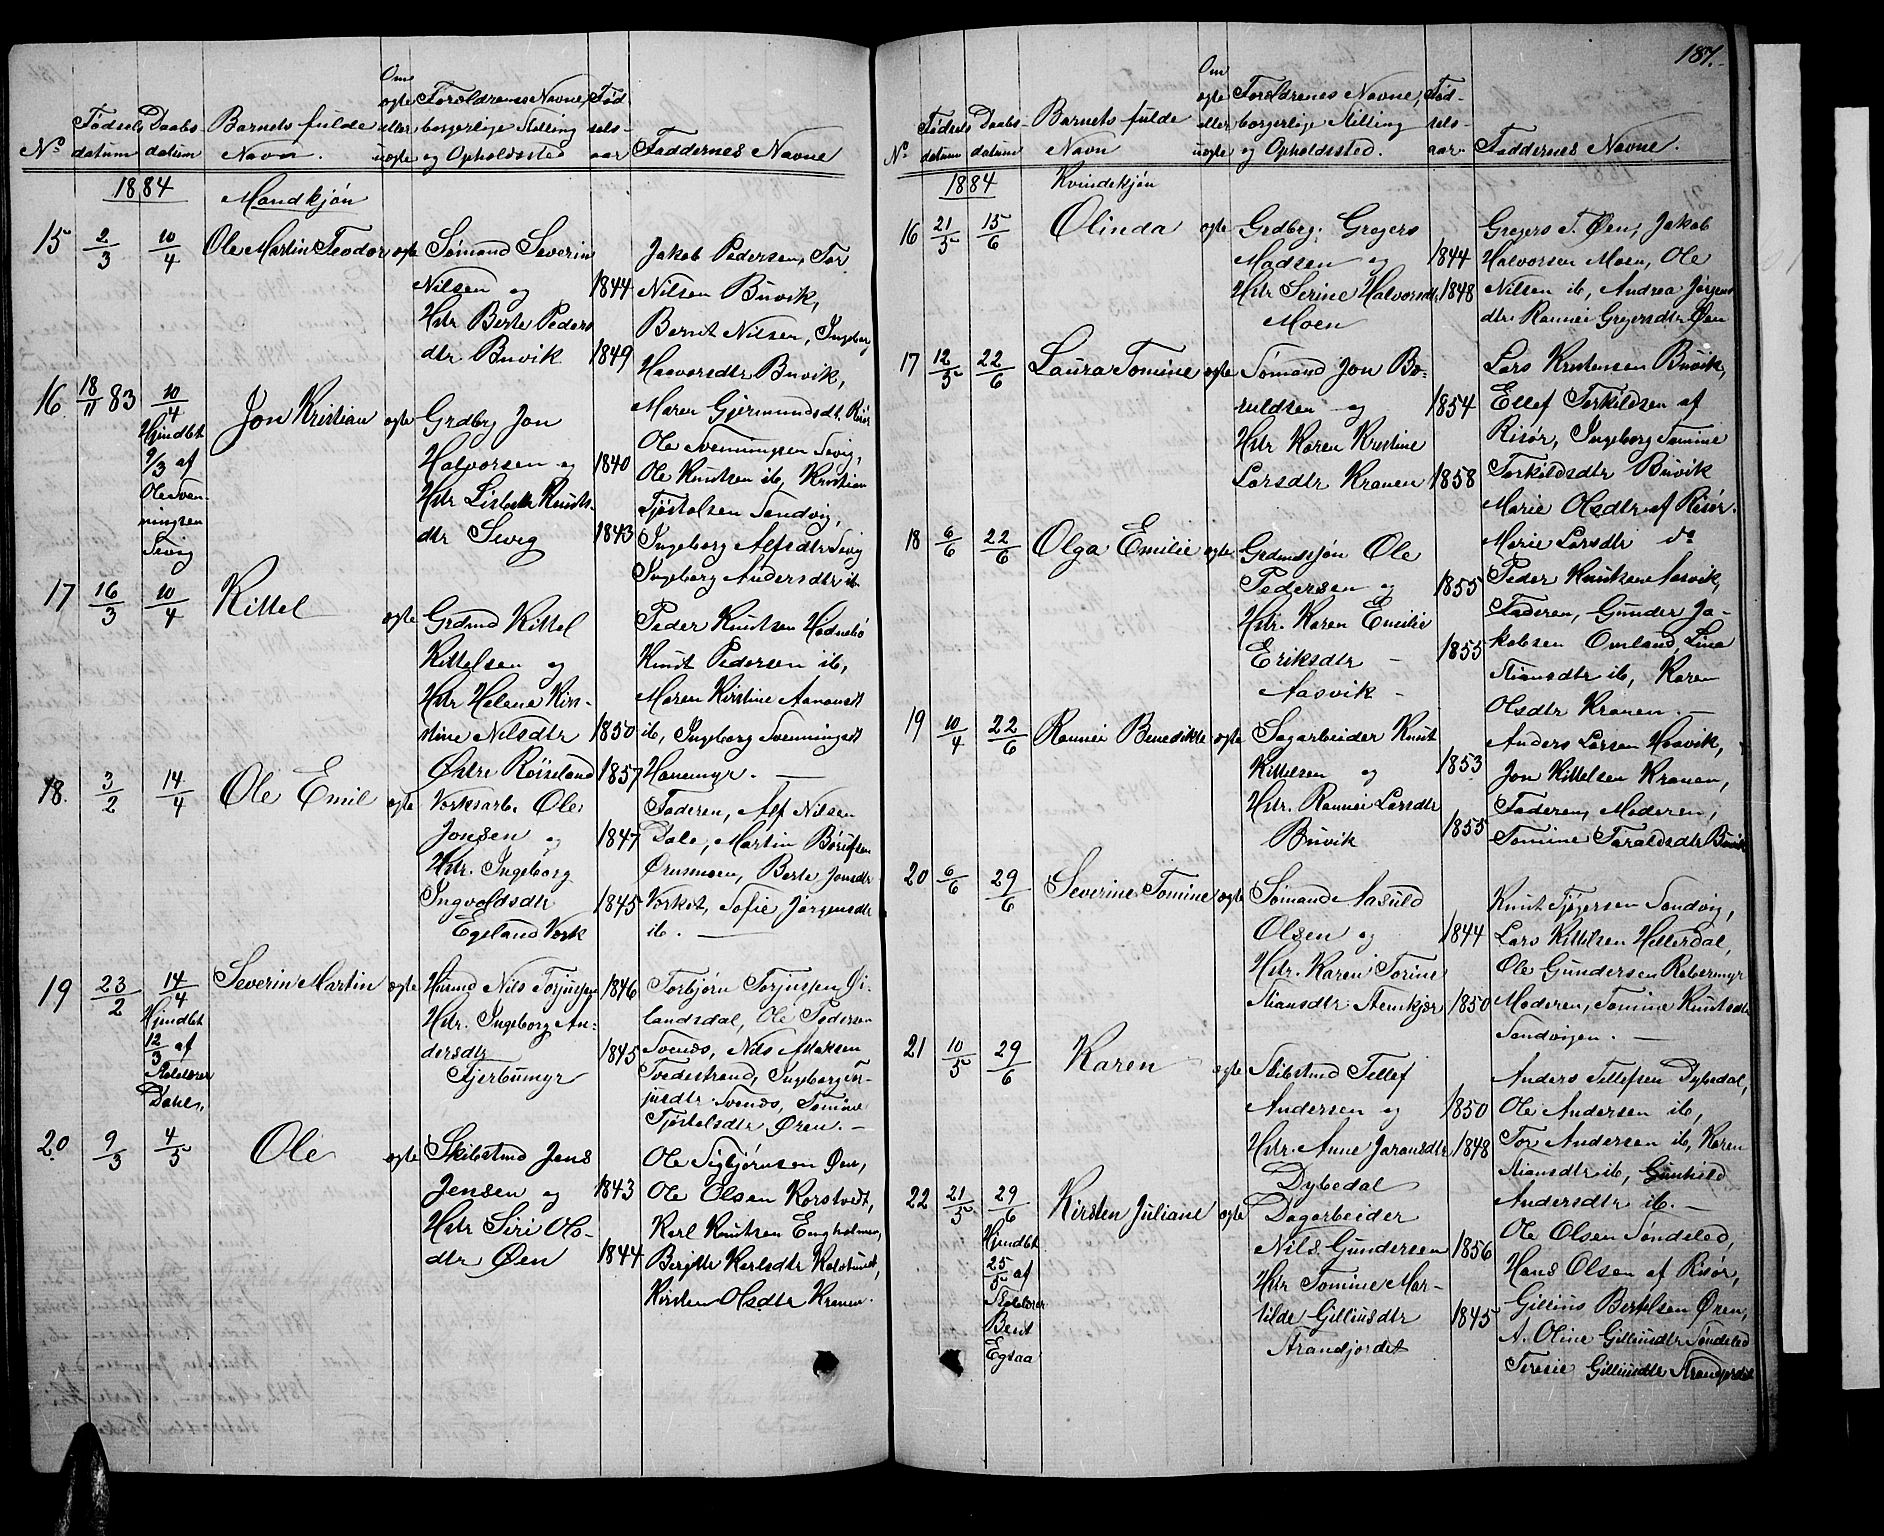 187.
No Fødsels datum Daabs datum Barnets fulde Navn. Om ægte eller uægte Forældrenes Navne, borgerlige Stilling og Opholdssted Fødselsaar Faddernes Navne
1884 Mandkjøn
15 2/3 10/4 Ole Martin Teodor ægte Sømand Severin
Nilsen og 1844
Hstr Berte Peders
dtr Buvik 1849
Jakob Pedersen, Tor
Nilsen Buvik,
Bernt Nilsen, Ingeborg
Haavorsdtr Buvik,
Maren Gjermundsdt. Risør
16. 18/11 83 10/4 Jon Kristian ægte Grdbrg Jon
Hjmdbt
9/3 af
Ole Sven-
ningsen
Sevig
Halvorsen og 1840
Hstr Lisbeth Knuts-
dtr Sevig 1843
Ole Svenningsen Sevig,
Ole Knutsen ib, Kristian
Tjøstolsen Sandvig,
Ingeborg Alfsdtr Sevig
Ingeborg Andersdtr ib
17 16/3 10/4 Kittel ægte Grdmd Kittel
Kittelsen og
Hstr Helene Kirs-
tine Nilsdtr 1850
Østre Røiseland 1857
Peder Knutsen Hødnebø
Knut Pedersen ib,
Maren Kirstine Aanonsdt
ib, Ingeborg Svenningsdt
Hanemyr. —
18. 3/2 14/4 Ole Emil ægte Verksarb. Ole
Jonsen og 1847
Hstr. Ingeborg
Ingvoldsdtr 1845
Egeland Verk
Faderen, Alf Nilsen
Dale, Martin Børufsen
Ørunmoen, Berte Jonsdtr
Verket, Sofie Jørgensdtr
ib. —
19 23/2 14/4 Severin Martin ægte Husmd Nils Torjussen 1846
Hjmdbt
12/3 af
Skolelærer
Dahl.
Hstr. Ingeborg An-
dersdtr 1845
Tjerbumyr
Torbjørn Torjussen Øi-
landsdal, Ole Pedersen
Svenås, Nils Alaksen
Tvedestrand, Ingeborg Tor-
jusdtr Svenås, Tomine
Tjøstolsdtr Øren. —
20 9/3 4/5 Ole ægte Skibstmd Jens
Jensen og 1843
Hstr Siri Ols-
dtr Øen 1844
Ole Sigbjørnsen Øen,
Ole Olsen Korstvedt,
Karl Knutsen Engholmen,
Birgitte Karlsdtr Kalstundt,
Kirsten Olsdtr Kranen.
No Fødsels datum Daabs-datum Barnets fulde Navn Om ægte eller uægte Forældrenes Navne, borgerlige Stilling og Opholdssted. Fødselsaar. Faddernes Navne.
1884 Kvindekjøn
16 21/5 15/6 Olinda ægte Grdbrg. Gregers
Madsen og 1844
Hstr Serine Halvorsdtr 1848
Moen
Gregers T. Øen, Jakob
Halvorsen Moen, Ole
Nilsen ib, Andrea Jørgens
dtr. Rannei Gregersdtr Øen
17 12/5 22/6 Laura Tomine ægte Sømand Jon Bo-
ruldsen og 1854
Hstr Karen Kristine
Larsdtr Kranen 1858
Lars Kristensen Buvik,
Ellef Terkildsen af
Risør, Ingeborg Tomine
Torkildsdtr Buvik
Marie Olsdtr af Risør.
Marie Larsdtr do
18 6/6 22/6 Olga Emilie ægte Grdmdssøn Ole
Pedersen og 1855
Hstr. Karen Emilie
Eriksdtr — 1855
Aasvik —
Peder Knutsen Aasvik,
Faderen, Gunder Ja-
kobsen Omland, Lina
Stiansdtr ib, Karen
Olsdtr Kranen. —
19 10/4 22/6 Rannei Benedikte ægte Sagarbeider Knut
Kittelsen og 1853
Hstr. Rannei Larsdtr
Buvik 1855
Anders Larsen Haavik,
Jon Kittelsen Kranen,
Faderen, Moderen,
Tomine Taraldsdtr Buvik
20 6/6 29/6 Severine Tomine ægte Sømand Aasuld
Olsen og 1844
Hstr. Karen Torine
Stiansdtr Stenkjær 1850
Knut Tjøgersen Sandvig,
Lars Kittelsen Hellerdal,
Ole Gundersen Røbermyr
Moderen, Tomine Knutsdtr
Sandvigen. —
21 10/5 29/6 Karen ægte Skibstmd Tellef
Andersen og 1850
Hstr. Anne Jøransdtr 1848
Dybedal
Anders Tellefsen Dybedal,
Ole Andersen ib,
Tor Andersen ib, Karen
Stiansdtr ib, Gunhild
Andersdtr ib. —
22 21/5 29/6 Kirsten Juliane ægte Dagarbeider
Hjmdbt
25/5 af
Skolelærer
Bent
Egsaa
Nils Gundersen 1856
Hstr Tomine Mar-
tilde Gilliusdtr 1845
Strandjordet
Ole Olsen Søndeled,
Hans Olsen af Risør,
Gillius Bertelsen Øren,
A. Oline Gilliusdtr Søndeled
Teresie Gilliusdtr Strandjordet